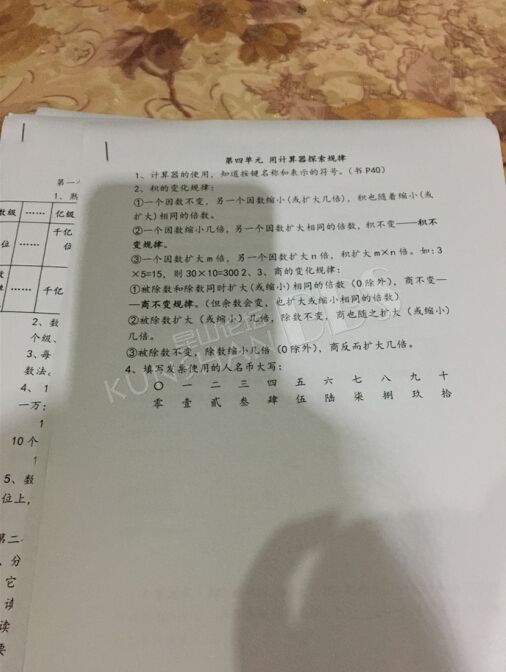 第四单元 用计算器探索规律
1、计算器的使用，知道按键名称和表示的符号。（书 P40）
2、积的变化规律：
①一个因数不变，另一个因数缩小(或扩大几倍)，积也随着缩小(或
扩大)相同的倍数。
②一个因数缩小几倍，另一个因数扩大相同的倍数，积不变——积不
变规律。
③一个因数扩大 m 倍，另一个因数扩大 n 倍，积扩大 m×n 倍。如：3
×5=15，则 30×10=300 2、3、商的变化规律：
①被除数和除数同时扩大（或缩小）相同的倍数（0 除外），商不变—
—商不变规律。（但余数会变，也扩大或缩小相同的倍数）
②被除数扩大（或缩小）几倍，除数不变，商也随之扩大（或缩小）
几倍。
③被除数不变，除数缩小几倍（0 除外），商反而扩大几倍。
4、填写发票使用的人名币大写：
〇 一 二 三 四 五 六 七 八 九 十
零 壹 贰 叁 肆 伍 陆 柒 捌 玖 拾
第一
1、熟
数级 …… 亿级
位 …… 千亿位
…… 千亿
2、数
个级、
3、每
数法。
4、1
一万：
1
10 个
1
5、数
位上，
第二
、分
它
读
读
要
昆山论坛
BBS